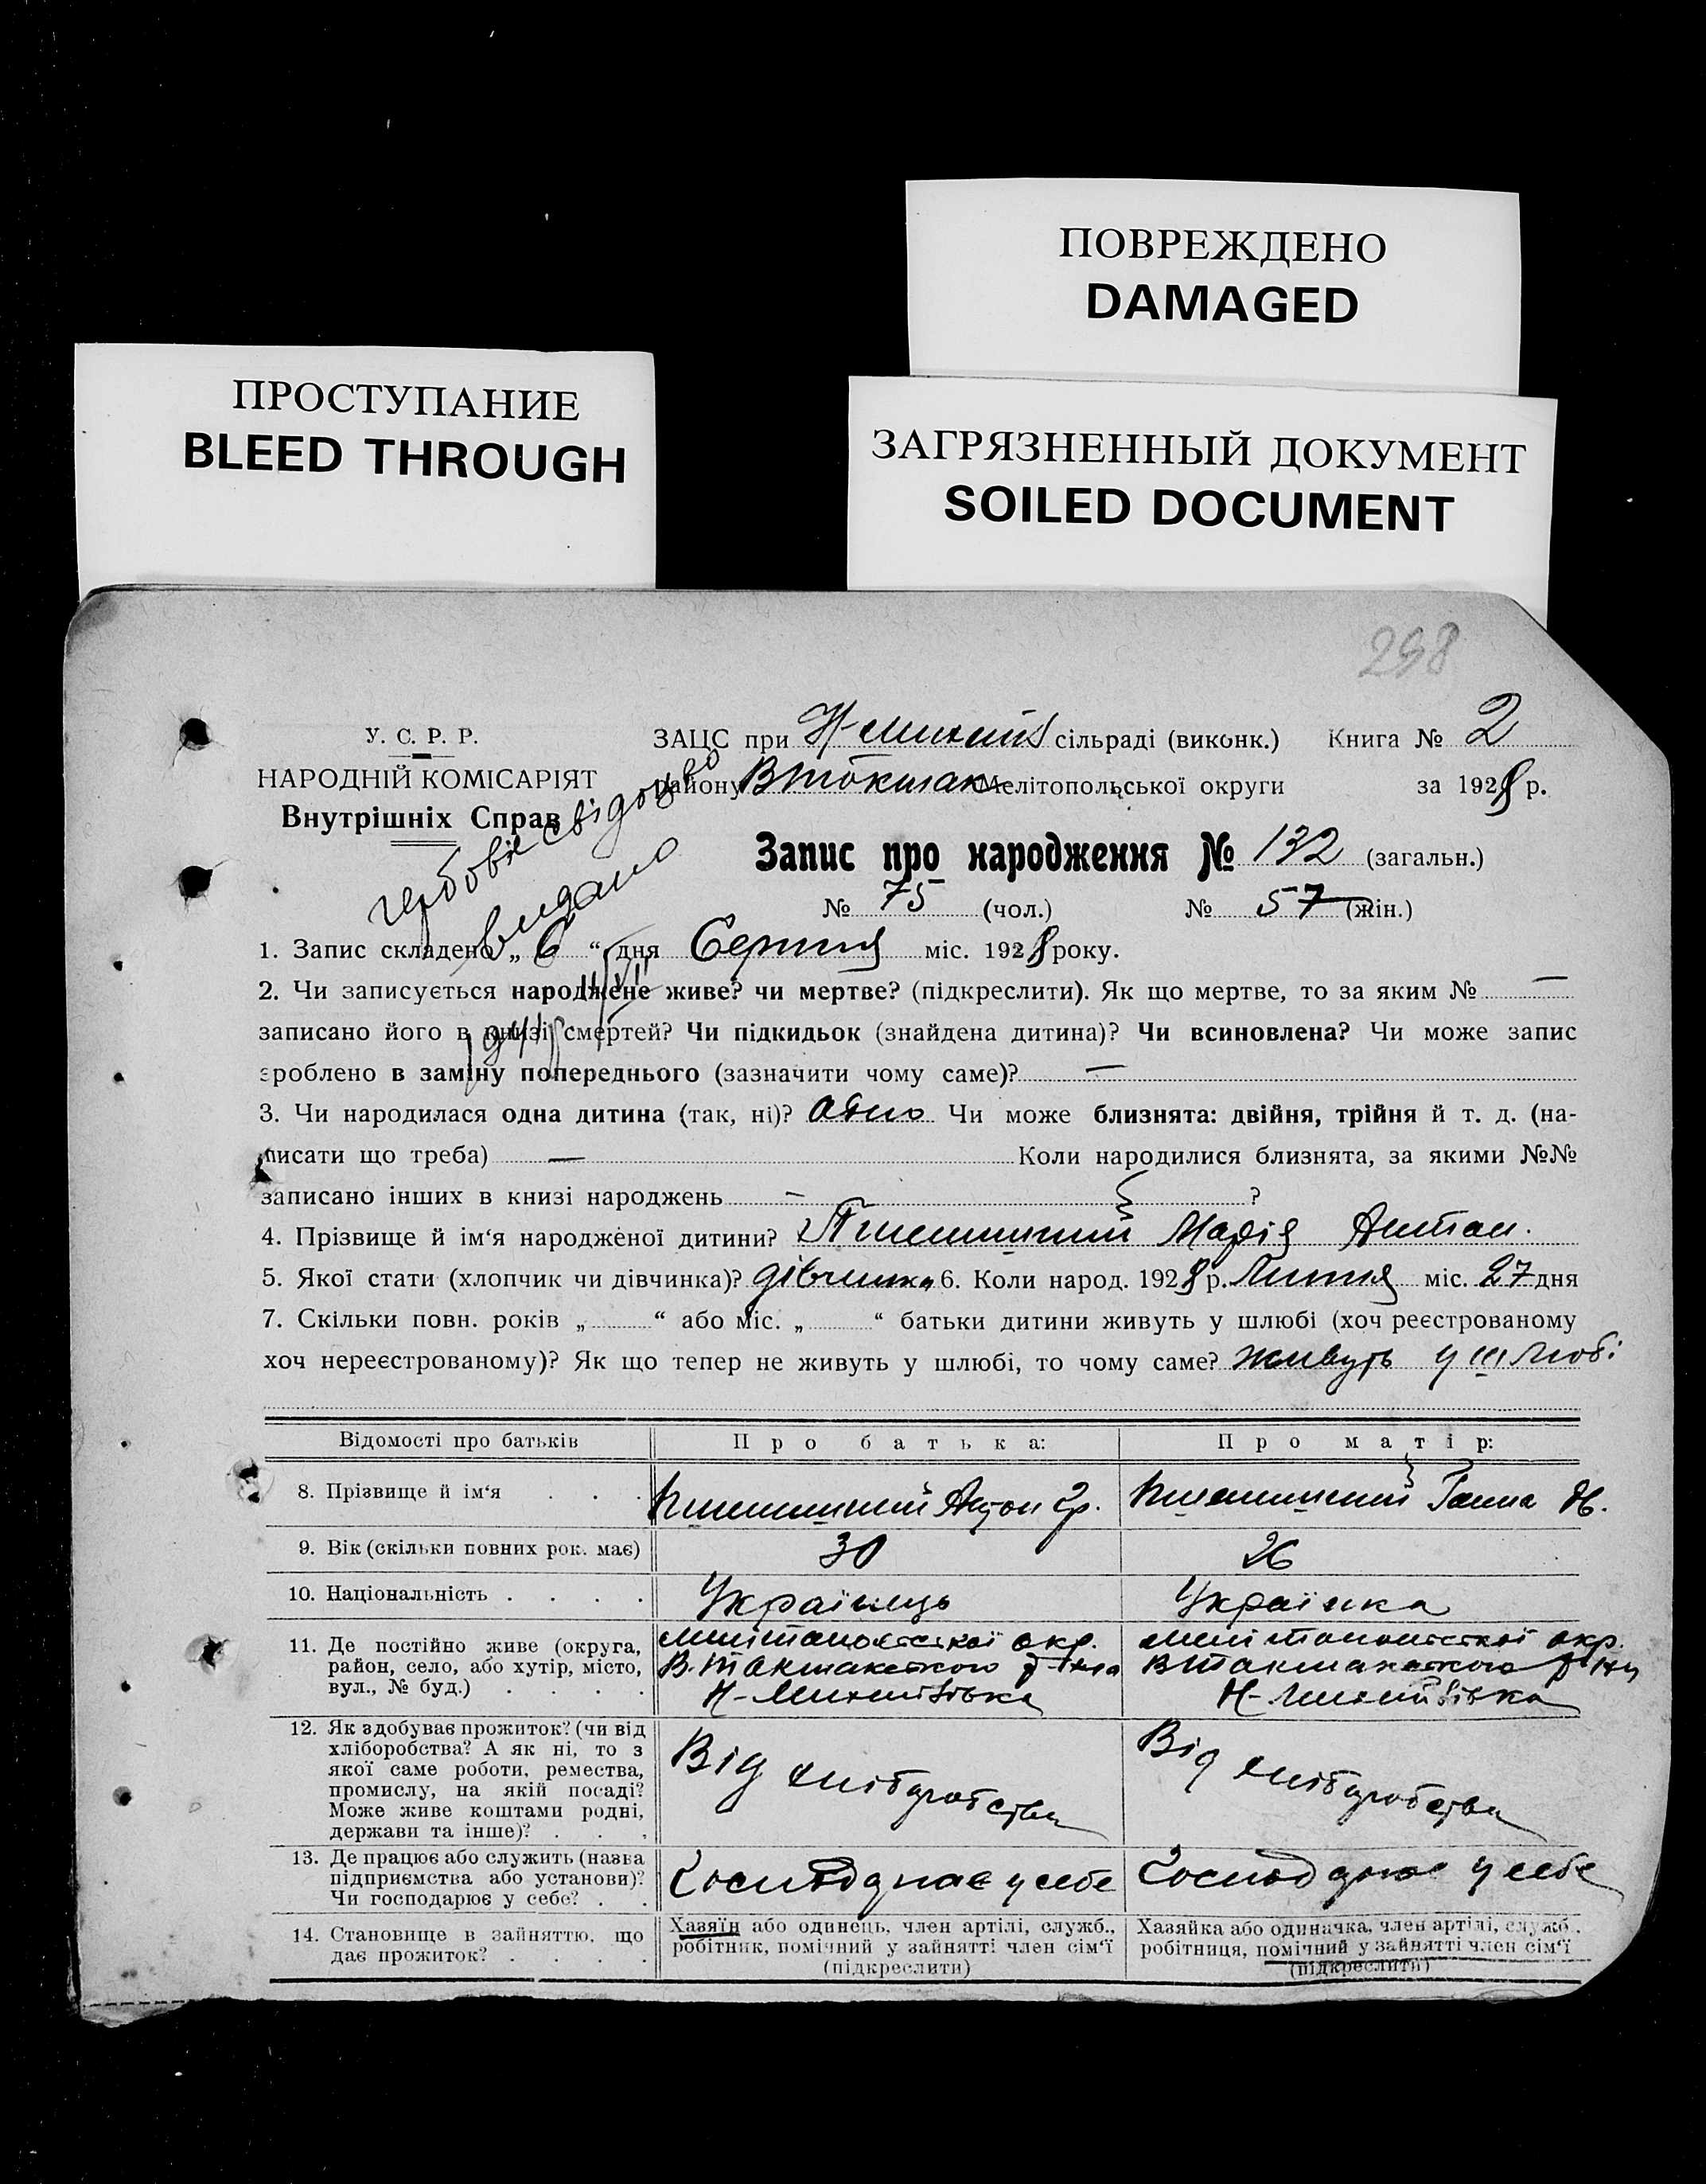 ПОВРЕЖДЕНО
DAMAGED
ПРОСТУПАНИЕ
BLEED THROUGH
ЗАГРЯЗНЕННЫЙ ДОКУМЕНТ
SOILED DOCUMENT
298
У. С. Р. Р.
НАРОДНІЙ КОМІСАРІЯТ
Внутрішніх Справ
ЗАЦС при сільраді (виконк.) Книга № 2
району ВТокмак Мелітопольської округи за 1928 р.
свідоцтво
видано
Запис про народження № 132 (загальн.)
№ 75 (чол.) № 57 (жін.)
1. Запис складено „ 6 “ дня Серпня міс. 1928 року.
2. Чи записується народжене живе? чи мертве? (підкреслити). Як що мертве, то за яким № —
записано його в книзі смертей? Чи підкидьок (знайдена дитина)? Чи всиновлена? Чи може запис
зроблено в заміну попереднього (зазначити чому саме)? —
3. Чи народилася одна дитина (так, ні)? Чи може близнята: двійня, трійня й т. д. (на-
писати що треба) — Коли народилися близнята, за якими №№
записано інших в книзі народжень — ?
4. Прізвище й ім‘я народженої дитини? Марія Антон.
5. Якої стати (хлопчик чи дівчинка)? дівчинка 6. Коли народ. 1928 р. Липня міс. 27 дня
7. Скільки повн. років „ “ або міс. „ “ батьки дитини живуть у шлюбі (хоч реєстрованому
хоч нереєстрованому)? Як що тепер не живуть у шлюбі, то чому саме? живуть у шлюбі
Відомості про батьків Про батька: Про матір:
8. Прізвище й ім‘я . . . Антон Гр. Ганна
9. Вік (скільки повних рок. має) 30 26
10. Національність . . . . Українець Українка
11. Де постійно живе (округа,
район, село, або хутір, місто,
вул., № буд.) . . . .
Мелітопольської окр.
В.Токмакського р-на
Н-Михайлівка
Мелітопольської окр.
ВТокмакського р-на
Н-Михайлівка
12. Як здобуває прожиток? (чи від
хліборобства? А як ні, то з
якої саме роботи, ремества,
промислу, на якій посаді?
Може живе коштами родні,
держави та інше)? . . .
Від хліборобства
Від хліборобства
13. Де працює або служить (назва
підприємства або установи)?
Чи господарює у себе? . .
у себе
у себе
14. Становище в зайняттю, що
дає прожиток? . . . .
Хазяїн або одинець, член артілі, служб.,
робітник, помічний у зайнятті член сім‘ї
(підкреслити)
Хазяйка або одиначка, член артілі, служб.,
робітниця, помічний у зайнятті член сім‘ї
(підкреслити)